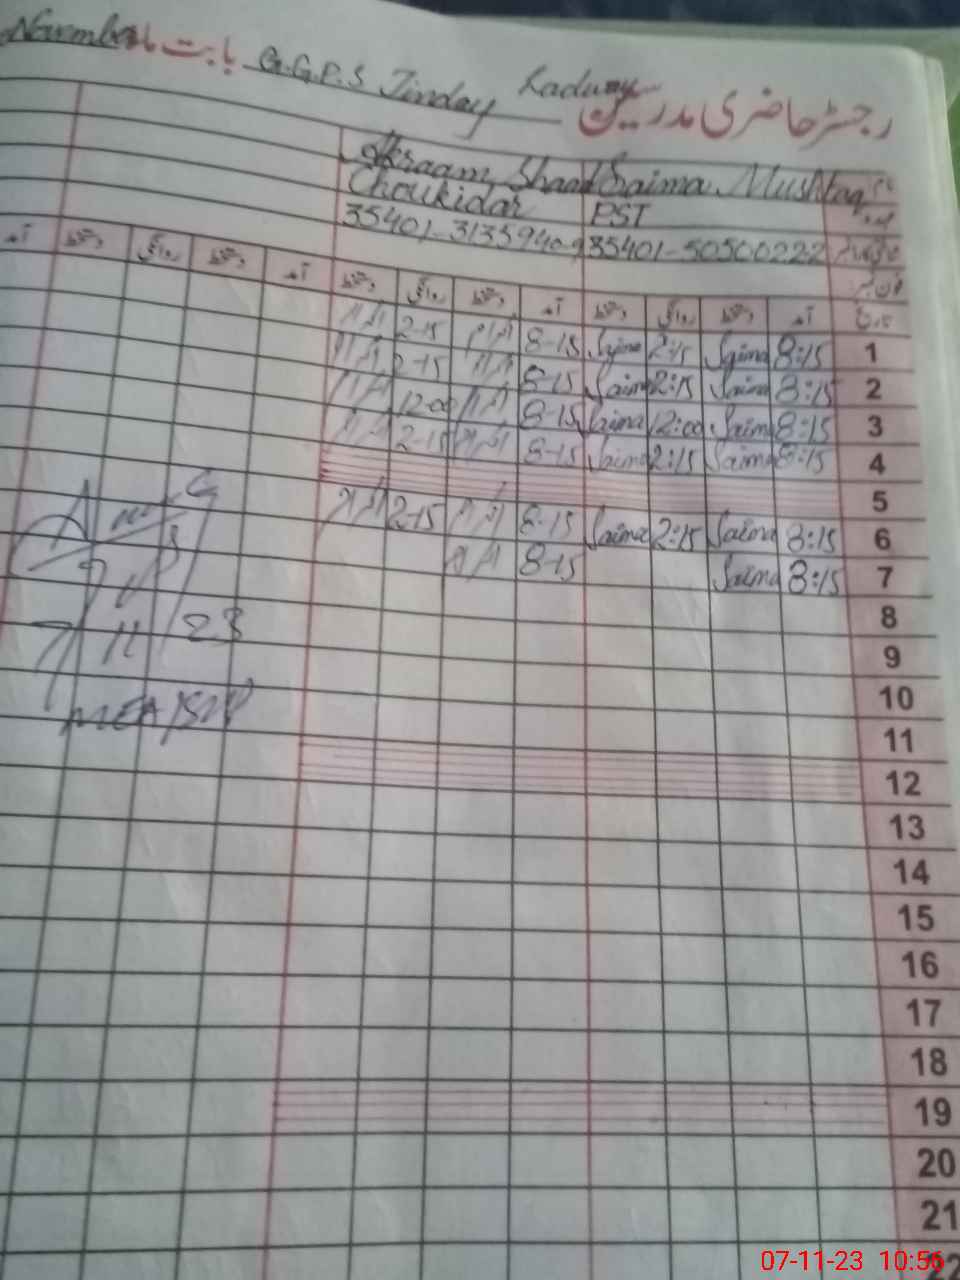 رجسٹر حاضری مدرسین G.G.P.S Jinday Kadway بابت ماہ November
Saima Mushtaq
PST Choukidar
35401-50500222 35401-3135940-9
تاریخ آمد دستخط روانگی دستخط آمد دستخط روانگی دستخط آمد دستخط روانگی دستخط آمد
1 8:15 Saima 2:15 Saima 8-15 2-15
2 8:15 Saima 2:15 Saima 8-15 2-15
3 8:15 Saima 12:00 Saima 8-15 12-00
4 8:15 Saima 2:15 Saima 8-15 2-15
5
6 8:15 Saima 2:15 Saima 8-15 2-15
7 8:15 Saima 8-15
8
9
10
11
12
13
14
15
16
17
18
19
20
21
22
7/11/23
MEA
07-11-23 10:56